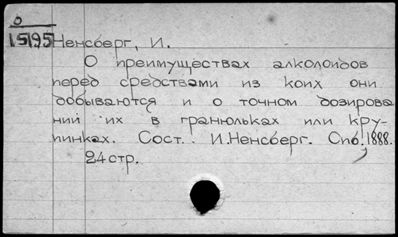 O
15195
Ненсберг, И.
О преимуществах алколоидов
перед средствами из коих они
добываются и о точном дозирова
нии их в гранюльках или кру-
пинках. Сост. И.Ненсберг. Спб, 1888.
24стр.